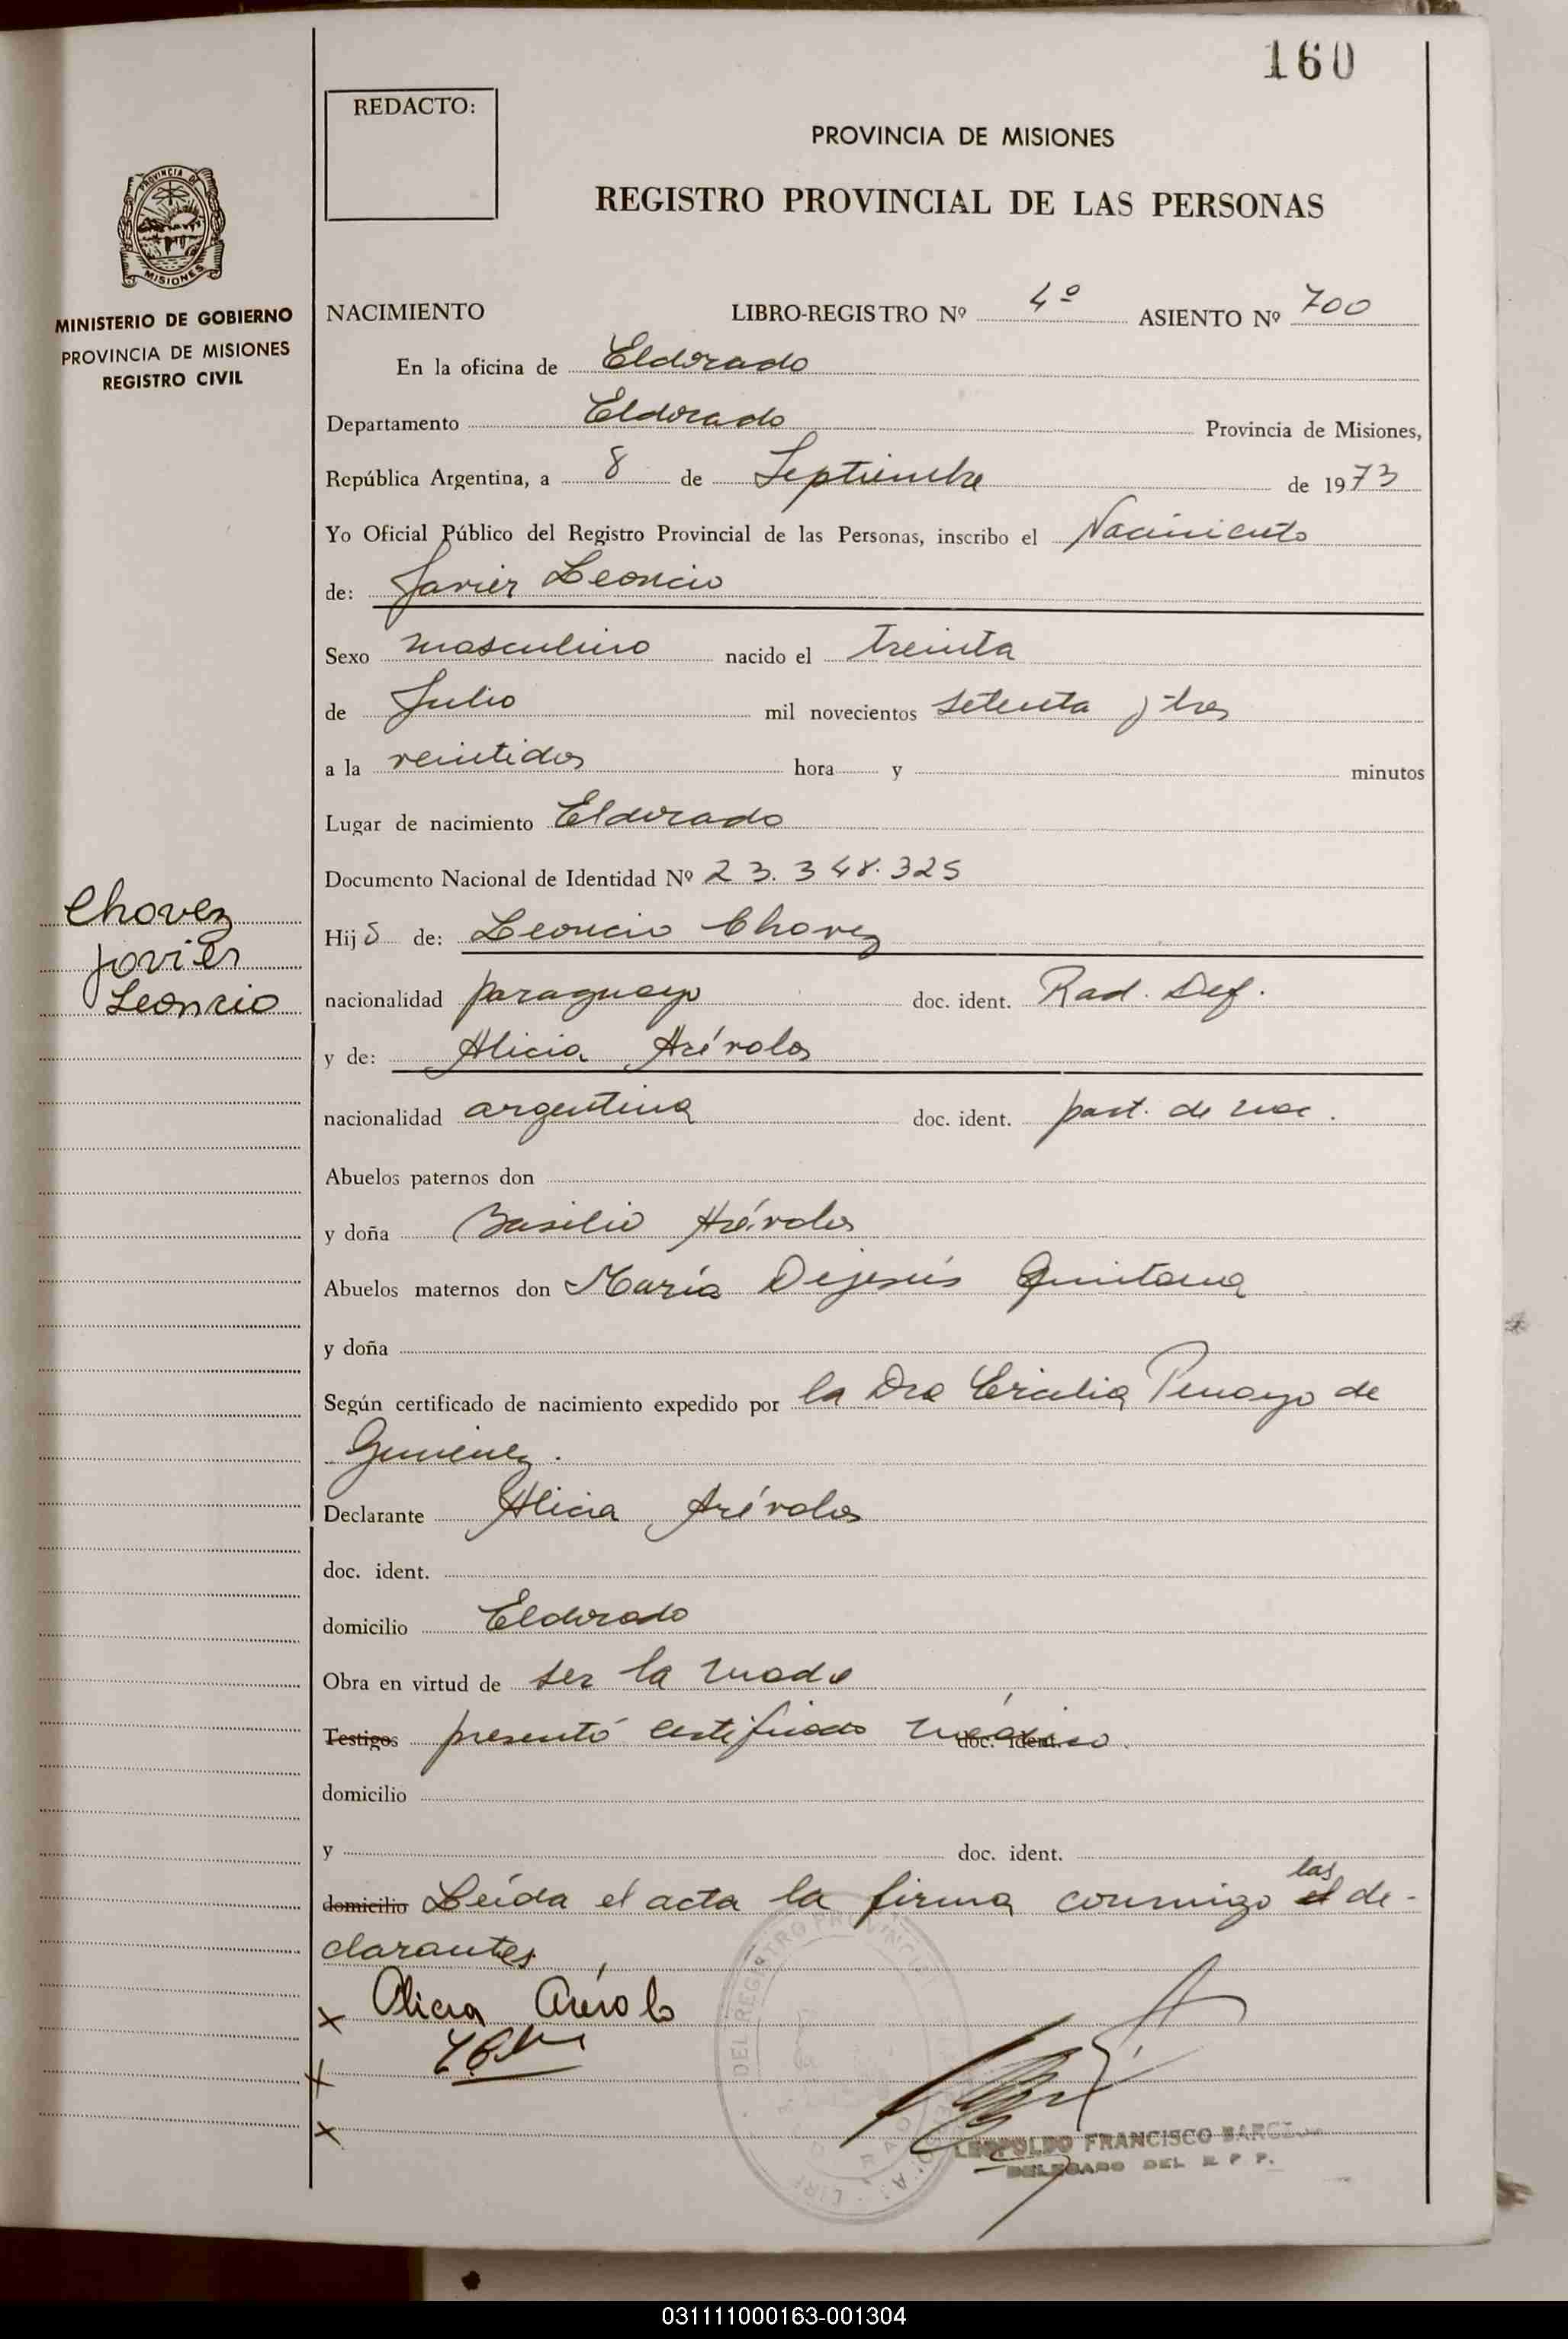 160
REDACTO:
PROVINCIA DE MISIONES
REGISTRO PROVINCIAL DE LAS PERSONAS
PROVINCIA DE
MISIONES
MINISTERIO DE GOBIERNO
PROVINCIA DE MISIONES
REGISTRO CIVIL
NACIMIENTO LIBRO-REGISTRO Nº 4º ASIENTO Nº 700
En la oficina de Eldorado
Departamento Eldorado Provincia de Misiones,
República Argentina, a 8 de Septiembre de 1973
Yo Oficial Público del Registro Provincial de las Personas, inscribo el Nacimiento
de: Javier Leoncio
Sexo masculino nacido el treinta
de Julio mil novecientos setenta y tres
a la veintidos hora y minutos
Lugar de nacimiento Eldorado
Documento Nacional de Identidad Nº 23.348.325
Chavez
Javier
Leoncio
Hijo de: Leoncio Chavez
nacionalidad paraguayo doc. ident. Rad. Def.
y de: Alicia Arévalos
nacionalidad argentina doc. ident. part. de nac.
Abuelos paternos don
y doña Basilio Arévalos
Abuelos maternos don María Dejesús Quintana
y doña
Según certificado de nacimiento expedido por la Dra Penayo de
Gimenez.
Declarante Alicia Arévalos
doc. ident.
domicilio Eldorado
Obra en virtud de ser la madre
Testigos presentó certificado médico. doc. ident.
domicilio
y doc. ident.
domicilio Leída el acta la firma conmigo el las de-
clarantes
x Alicia Arévalo
x
x
DEL REGISTRO PROVINCIAL
LEOPOLDO FRANCISCO
DELEGADO DEL R P P.
031111000163-001304